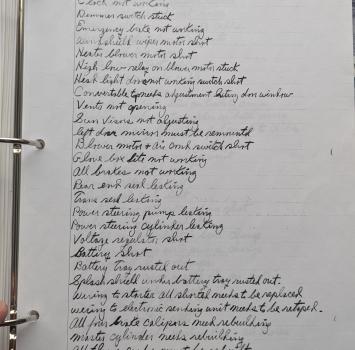 Clock not working
Dimmer switch stuck
Emergency brake not working
windshield wiper motor shot
Heater blower motor shot
High low relay on blower motor stuck
Head light door not working switch shot
Convertable top needs adjustment hitting door window
Vents not opening
Sun Visors not adjusting
left door mirror must be remounted
Blower motor & air cond switch shot
Glove box lite not working
All brakes not working
Rear end seal leaking
Trans seal leaking
Power steering pump leaking
Power steering cylinder leaking
Voltage regulator shot
Battery Shot
Battery tray rusted out
Splash shield under battery tray rusted out.
wiring to starter all shorted needs to be replaced
wireing to electronic sending unit needs to be retaped.
All four brake calipers need rebuilding
master cylinder needs rebuilding